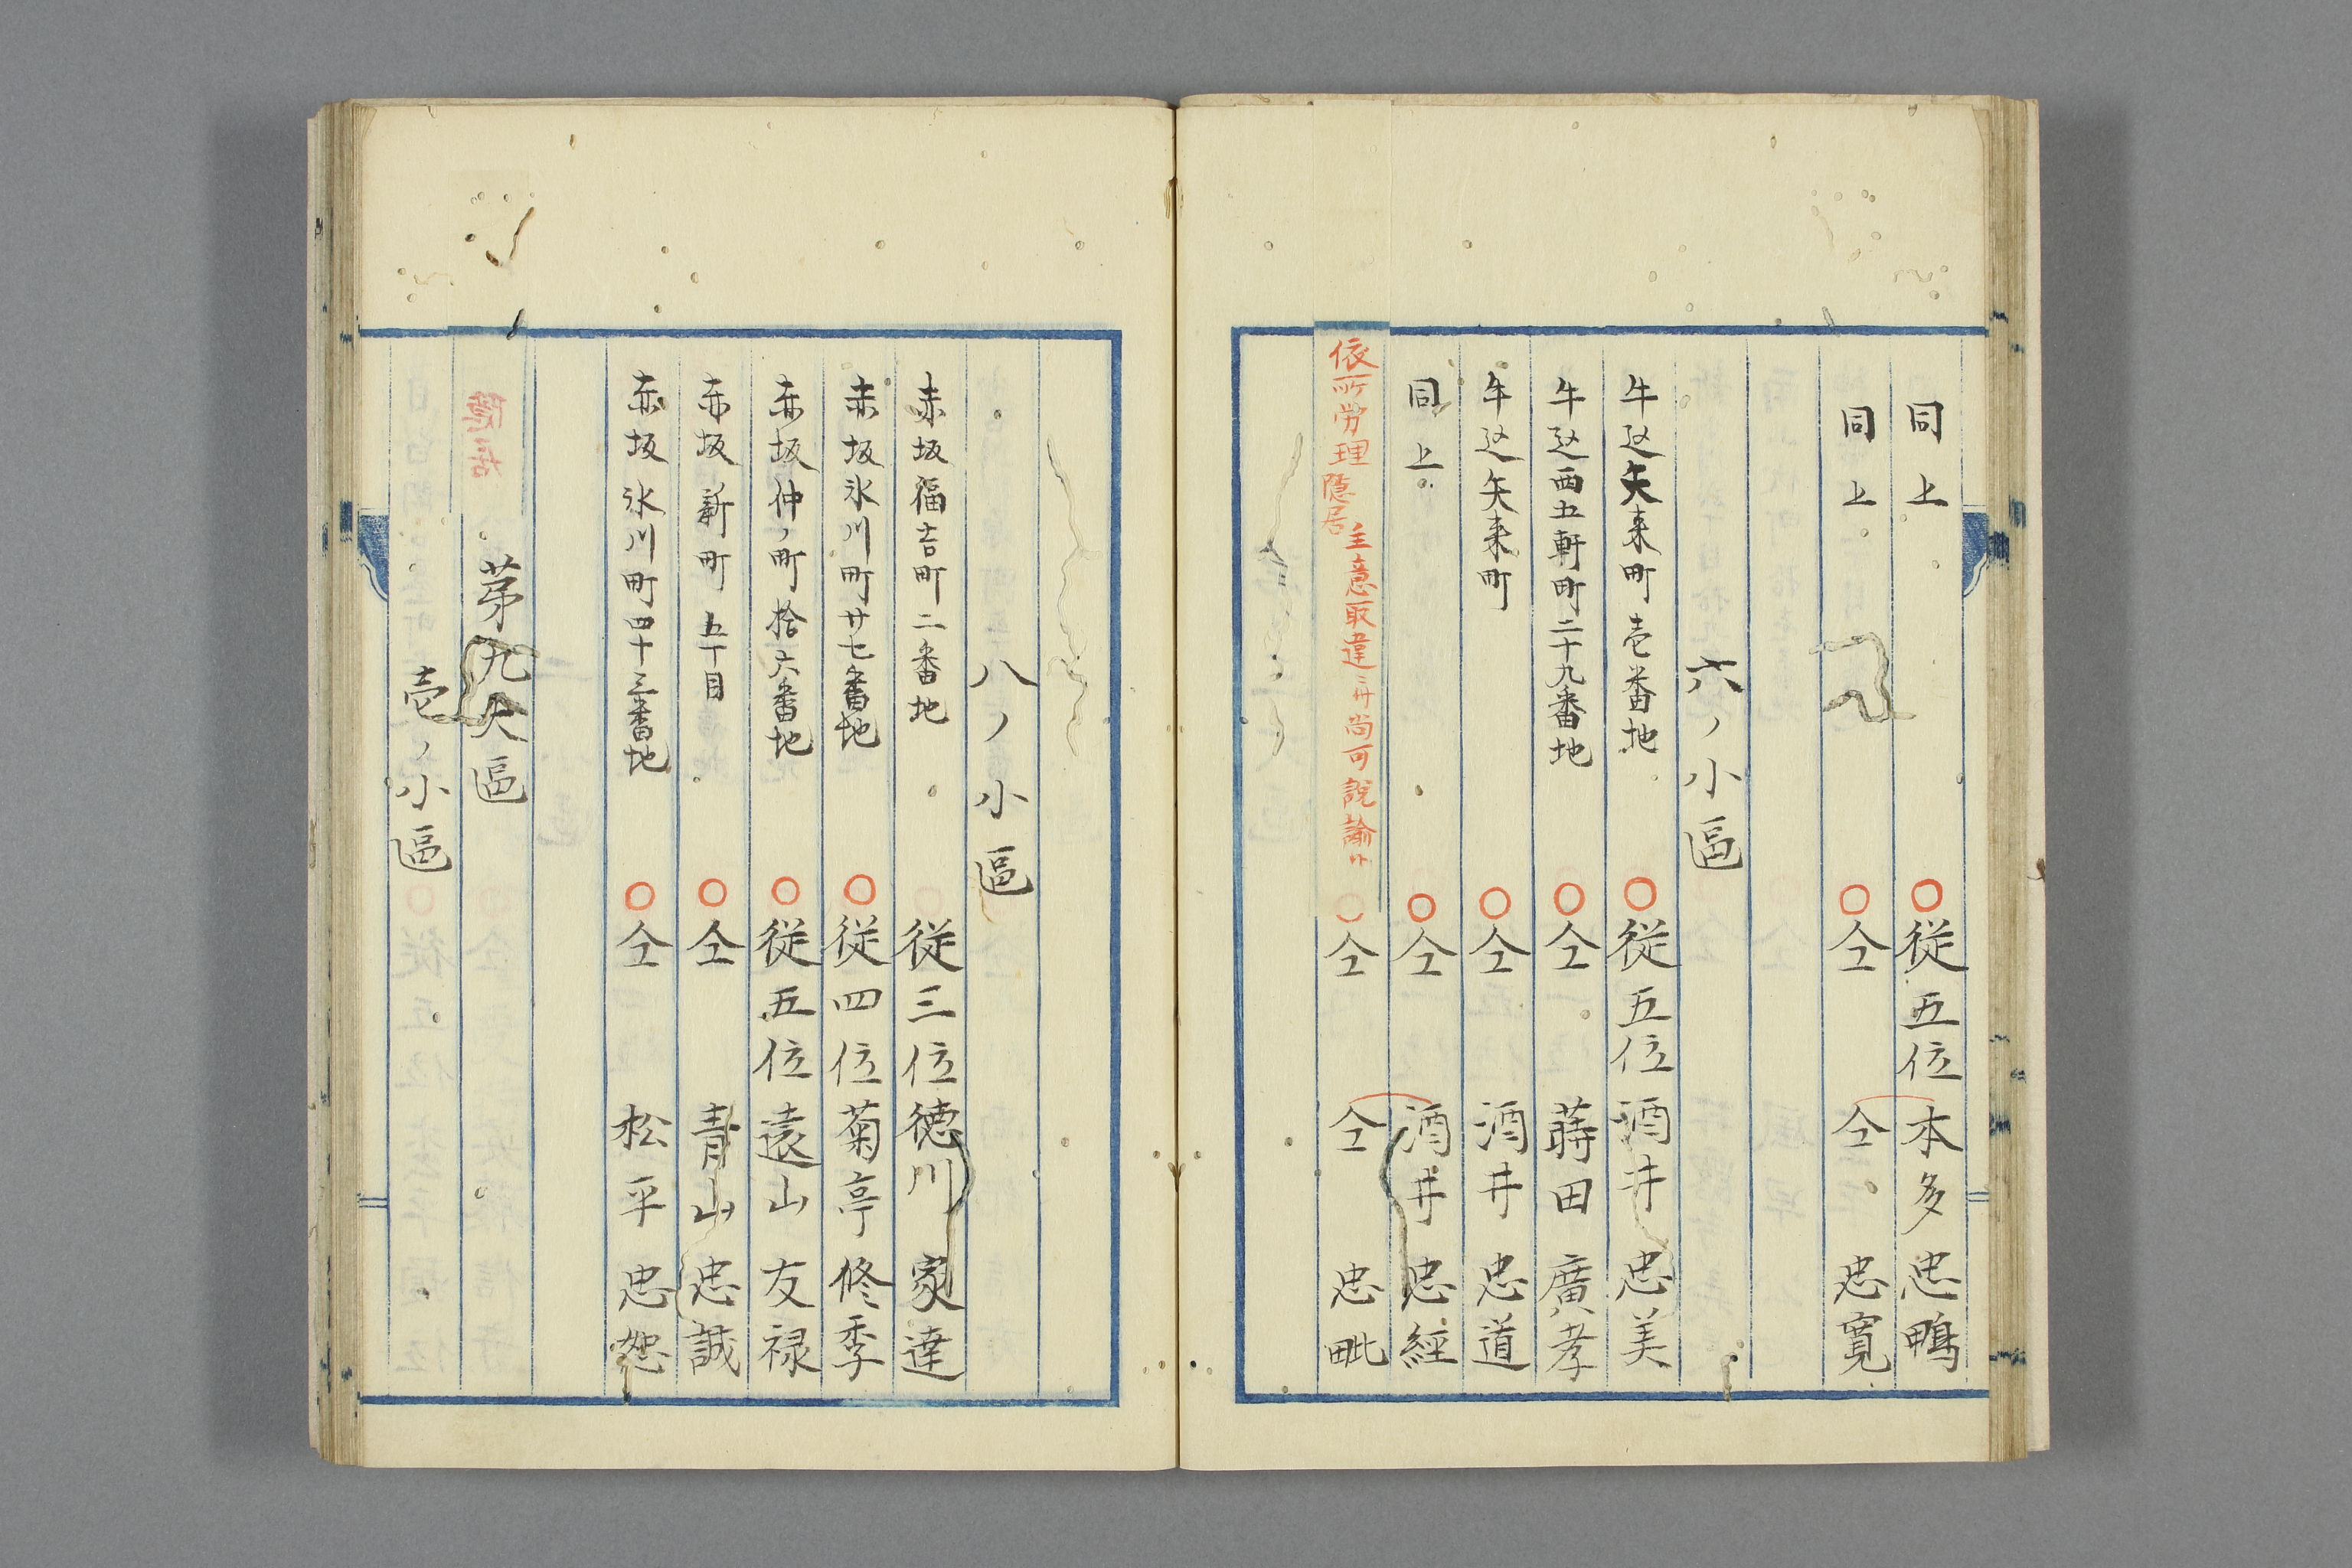 同上 ○従五位本多忠鵬
同上 ○仝 仝 忠寛
六ノ小區
牛込矢来町壱番地 ○従五位酒井忠美
牛込西五軒町二十九番地 ○仝 蒔田廣孝
牛込矢来町 ○仝 酒井忠道
同上 ○仝 酒井忠經
依所労理隠居主意取違ニ付尚可説諭 ○仝 仝 忠毗
八ノ小區
赤坂福吉町二番地 従三位徳川家達
赤坂氷川町廿七番地 ○従四位菊亭脩季
赤坂仲ノ町拾六番地 ○従五位遠山友禄
赤坂新町五丁目 ○仝 青山忠誠
赤坂氷川町四十三番地 ○仝 松平忠恕
苐九大區
壱ノ小區